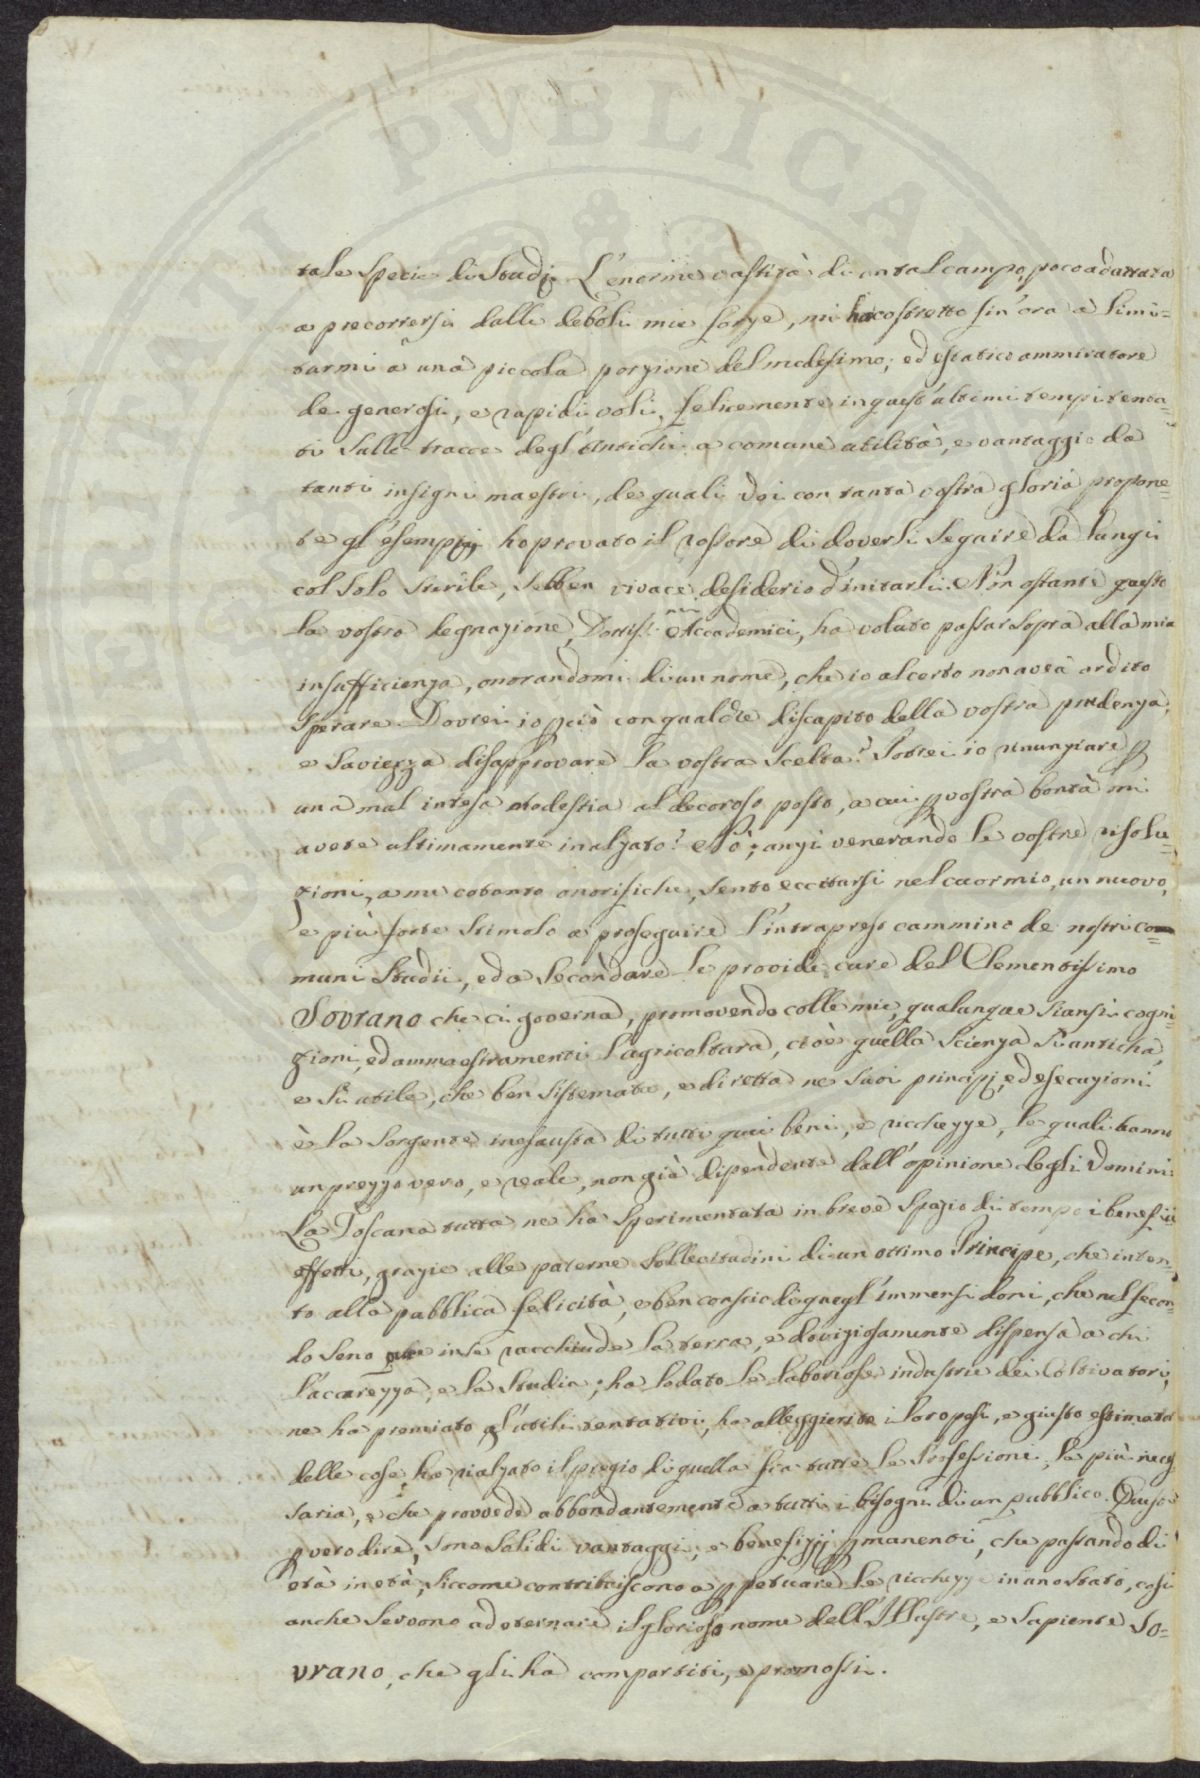 tale specie di Studj. L'enorme vastità di un tal campo, poco adattata
a precorrersi dalle deboli mie forze, mi ha costretto sin'ora à limi=
tarmi à una piccola porzione del medesimo; ed estatico ammiratore
de generosi, e rapidi voli, felicemente in quest'ultimi tempi tenta=
ti sulle tracce degl'Antichi a comune utilità, e vantaggio da
tanti insigni maestri, de quali Voi con tanta vostra gloria propone=
te gl'esempj ho provato il rossore di doverli seguire da lungi
col solo sterile, sebben vivace desiderio d'imitarli. Non ostante questo
la vostra degnazione, Dottiss:mi Accademici, ha voluto passar sopra alla mia
insufficienza, onorandomi di un nome, che io al certo non avea ardito
sperare. Dovrei io p ciò con qualche discapito della vostra prudenza,
e saviezza disapprovare la vostra scelta? Potrei io rinunziare p
una mal intesa modestia al decoroso posto, a cui p vostra bontà mi
avete ultimamente inalzato? Nò; anzi venerando le vostre risolu=
zioni, a me cotanto onorifiche, sento eccitarsi nel cuor mio, un nuovo,
e più forte stimolo a proseguire l'intrapreso cammino de nostri co=
muni Studii, ed a secondare le provide cure del Clementissimo
Sovrano che ci governa, promovendo colle mie, qualunque siansi cogni=
zioni, ed ammaestramenti l'agricoltura, cioè quella Scienza sì antica,
e sì utile, che ben sistemata, e diretta ne suoi principj, ed esecuzioni
è la sorgente inesausta di tutti quei beni, e ricchezze, le quali hanno
un prezzo vero, e reale, non già dipendente dall'opinione degli Uomini.
La Toscana tutta ne ha sperimentata in breve spazio di tempo i benefici
effetti, grazie alle paterne sollecitudini di un ottimo Principe, che inten=
to alla pubblica felicità, e ben conscio di quegl'immensi doni, che nel fecon=
do seno in se racchiude la terra, e doviziosamente dispensa a chi
l'accarezza, e la studia; ha lodato le laboriose industrie dei Coltivatori,
ne ha premiato gl'utili tentativi, ha alleggerito i loro pesi, e giusto estimator
delle cose, ha rialzato il pregio di quella fra tutte le Professioni, la più neces
saria, e che provvede abbondantemente a tutti i bisogni di un pubblico. Questi
p vero dire, sono solidi vantaggi, e benefizj pmanenti, che passando di
età in età, siccome contribuiscono a ppetuare le ricchezze in uno stato, così
anche servono ad eternare il glorioso nome dell'Illustre, e sapiente So=
vrano, che gli hà compartiti, e promossi.